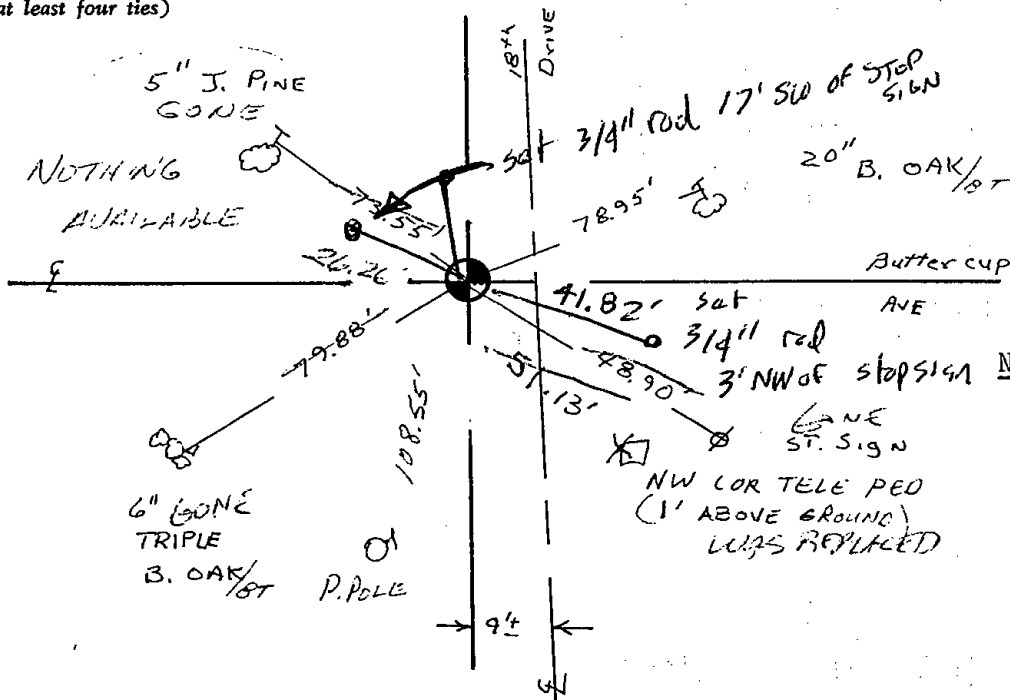 at least four ties)
18th Drive
5" J. PINE
GONE
NOTHING
AVAILABLE
set 3/4" rod 17' SW of STOP
SIGN
20"
B. OAK/BT
78.95'
73.55'
26.26'
℄
Buttercup
AVE
41.82' set
3/4" rod
3' NW of stop sign N
79.88'
108.55'
51.13'
48.90'
GONE
ST. SIGN
NW COR TELE PED
(1' ABOVE GROUND)
WAS REPLACED
6" GONE
TRIPLE
B. OAK/BT
P. POLE
9'±
℄